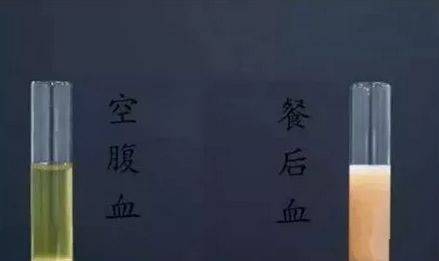 空腹血
餐后血